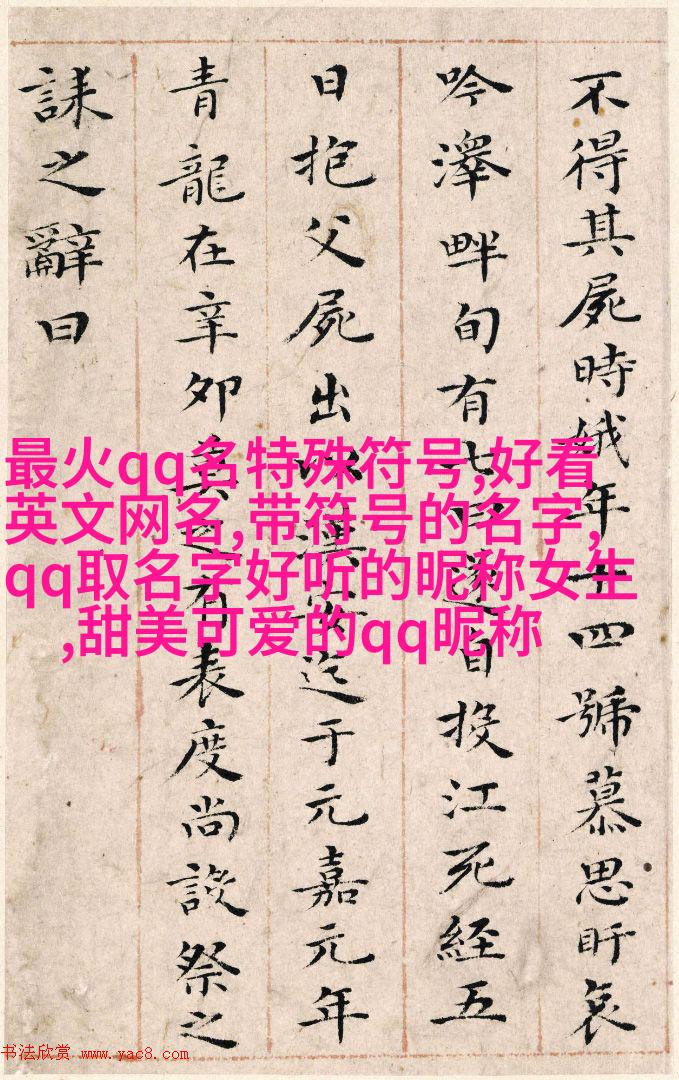 不得其屍時娥年十四號慕思盱哀
吟澤畔旬有七日遂自投江死經五
日抱父屍出以漢安迄于元嘉元年
青龍在辛卯莫之有表度尚設祭之
誄之辭曰
最火qq名特殊符号,好看
英文网名,带符号的名字,
qq取名字好听的昵称女生
,甜美可爱的qq昵称
书法欣赏 www.yac8.com